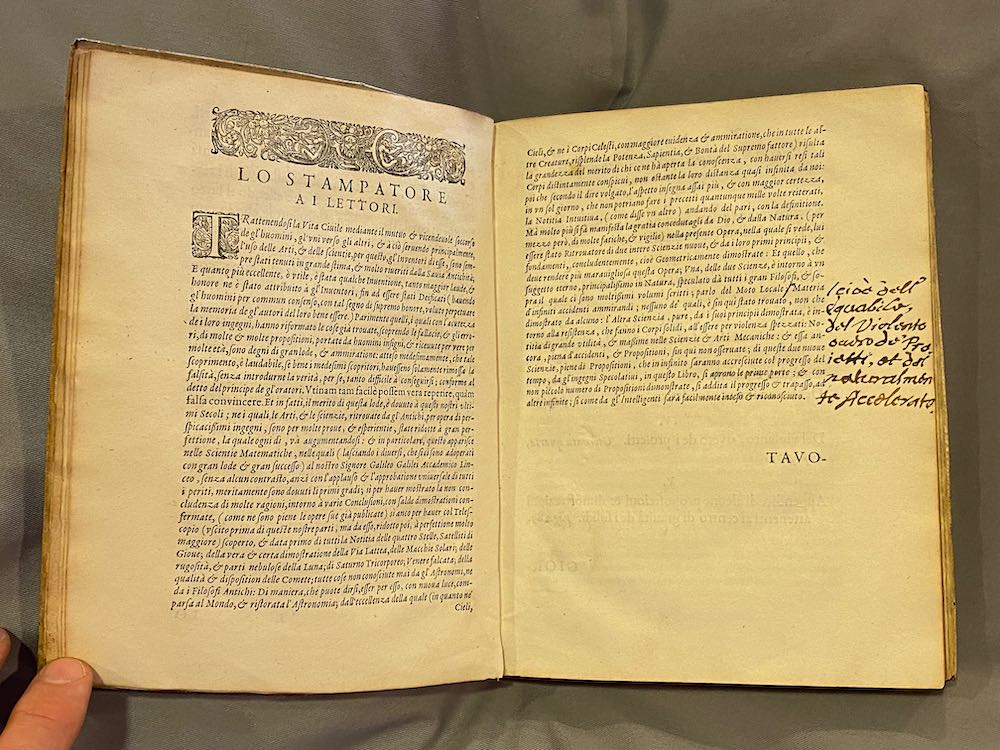 LO STAMPATORE
A I LETTORI.
TRattenendosi la Vita Ciuile mediante il mutuo & vicendeuole soccorso
de gl'huomini, gl'vni verso gli altri, & à ciò seruendo principalmente,
l'uso delle Arti, & delle scientie, per questo, gl'Inuentori di esse, sono sem-
pre stati tenuti in grande stima, & molto riueriti dalla Sauia Antichità;
E quanto piu eccellente, è vtile, è stata qualche Inuentione, tanto maggior laude, &
honore ne è stato attribuito à gl'Inuentori, fin ad essere stati Deificati (hauendo
gl'huomini per commun consenso, con tal segno di supremo honore, voluto perpetuare
la memoria de gl'autori del loro bene essere) Parimente quelli, i quali con l'acutezza
de i loro ingegni, hanno riformato le cose già trouate, scoprendo le fallacie, & gl'erro-
ri, di molte & molte propositioni, portate da huomini insigni, & riceuute per vere per
molte età, sono degni di gran lode, & ammiratione: atteso medesimamente, che tale
scoprimento, è laudabile, se bene i medesimi scopritori, hauessero solamente rimossa la
falsità, senza introdurne la verità, per se, tanto difficile à conseguirsi; conforme al
detto del principe de gl'oratori. Vtinam tam facilè possem vera reperire, quàm
falsa conuincere. Et in fatti, il merito di questa lode, è douuto à questi nostri vlti-
mi Secoli; ne i quali, le Arti, & le scientie, ritrouate da gl'Antichi, per opera di per-
spicacissimi ingegni, sono per molte proue, & esperientie, state ridotte à gran per-
fettione, la quale ogni dì, và augumentandosi: & in particolare, questo apparisce
nelle Scientie Matematiche, nelle quali (lasciando i diuersi, che ci si sono adoperati
con gran lode & gran successo) al nostro Signore Galileo Galilei Accademico Lin-
ceo, senza alcun contrasto, anzi con l'applauso & l'approbatione vniuersale di tutti
i periti, meritamente sono douuti li primi gradi; sì per hauer mostrato la non con-
cludenza di molte ragioni, intorno à varie Conclusioni, con salde dimostrationi con-
fermate, (come ne sono piene le opere sue già publicate) sì anco per hauer col Teles-
copio (vscito prima di queste nostre parti, ma da esso, ridotto poi, à perfettione molto
maggiore) scoperto, & data prima di tutti la Notitia delle quattro Stelle, Satelliti di
Gioue; della vera & certa dimostratione della Via Lattea, delle Macchie Solari; delle
rugosità, & parti nebulose della Luna; di Saturno Tricorporeo; Venere falcata; della
qualità & disposition delle Comete; tutte cose non conosciute mai da gl'Astronomi, ne
da i Filosofi Antichi: Di maniera, che puote dirsi, esser per esso, con nuoua luce, com-
parsa al Mondo, & ristorata l'Astronomia; dall'eccellenza della quale (in quanto ne'
Cieli,
Cieli, & ne i Corpi Celesti, con maggiore euidenza & ammiratione, che in tutte le al-
tre Creature, risplende la Potenza, Sapientia, & Bontà del Supremo fattore) risulta
la grandezza del merito di chi ce ne hà aperta la conoscenza, con hauersi resi tali
Corpi distintamente conspicui, non ostante la loro distanza quasi infinita da noi:
poi che secondo il dire volgato, l'aspetto insegna assai più, & con maggior certezza,
in vn sol giorno, che non potriano fare i precetti quantunque mille volte reiterati,
la Notitia Intuitiua, (come disse vn altro) andando del pari, con la definitione.
Mà molto più si fà manifesta la gratia concedutagli da Dio, & dalla Natura, (per
mezzo però, di molte fatiche, & vigilie) nella presente Opera, nella quale si vede, lui
essere stato Ritrouator di due intere Scienze nuoue, & da i loro primi principii, &
fondamenti, concludentemente, cioè Geometricamente dimostrate: Et quello, che
deue rendere più marauigliosa questa Opera; Vna, delle due Scienze, è intorno à vn
suggetto eterno, principalissimo in Natura, speculato dà tutti i gran Filosofi, & so-
pra il quale ci sono moltissimi volumi scritti; parlo del Moto Locale; Materia
d'infiniti accidenti ammirandi; nessuno de' quali, è sin qui stato trouato, non che
dimostrato da alcuno: l'Altra Scienza, pure, da i suoi principii dimostrata, è in-
torno alla resistenza, che fanno i Corpi solidi, all'essere per violenza spezzati: No-
titia di grande vtilità, & massime nelle Scientie & Arti Mecaniche: & essa an-
cora, piena d'accidenti, & Propositioni, sin qui non osseruate; di queste due nuoue
Scienzie, piene di Propositioni, che in infinito saranno accresciute col progresso del
tempo, da gl'ingegni Specolatiui, in questo Libro, si aprono le prime porte; & con
non piccolo numero di Propositioni dimostrate, si addita il progresso & trapasso, ad
altre infinite; si come da gl'Intelligenti sarà facilmente inteso & riconosciuto.
(cioè dell'
Equabile,
del Violento
ouero de' Pro-
ietti, et del
naturalmen
te Accelerato.
TAVO-